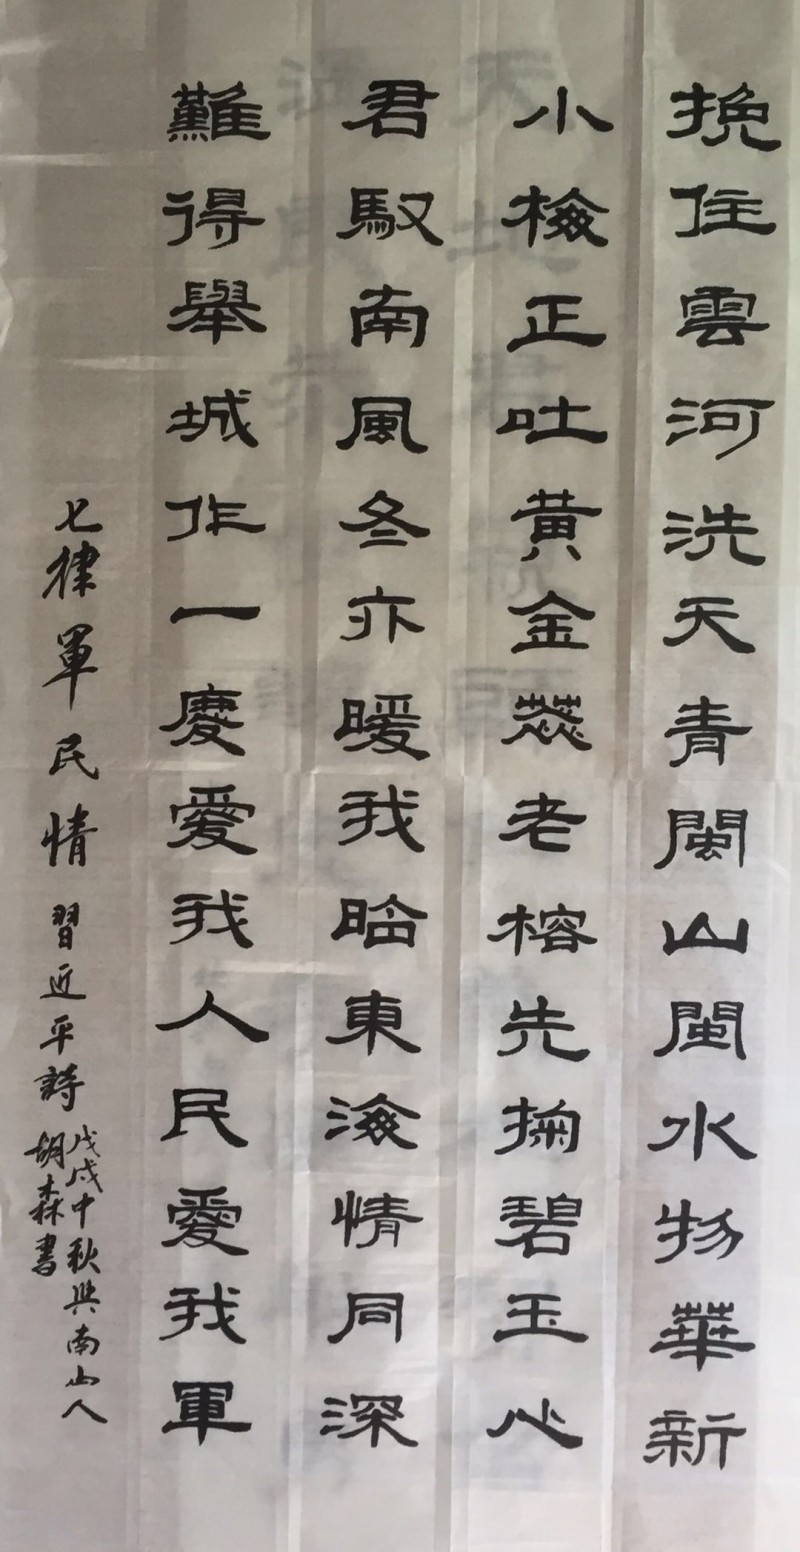 挽住雲河洗天青閩山閩水物華新
小檢正吐黄金蕊老榕先掬碧玉心
君馭南風冬亦暖我臨東海情同深
難得舉城作一慶愛我人民愛我軍
七律軍民情習近平詩
戊戌中秋興南山人
胡森書